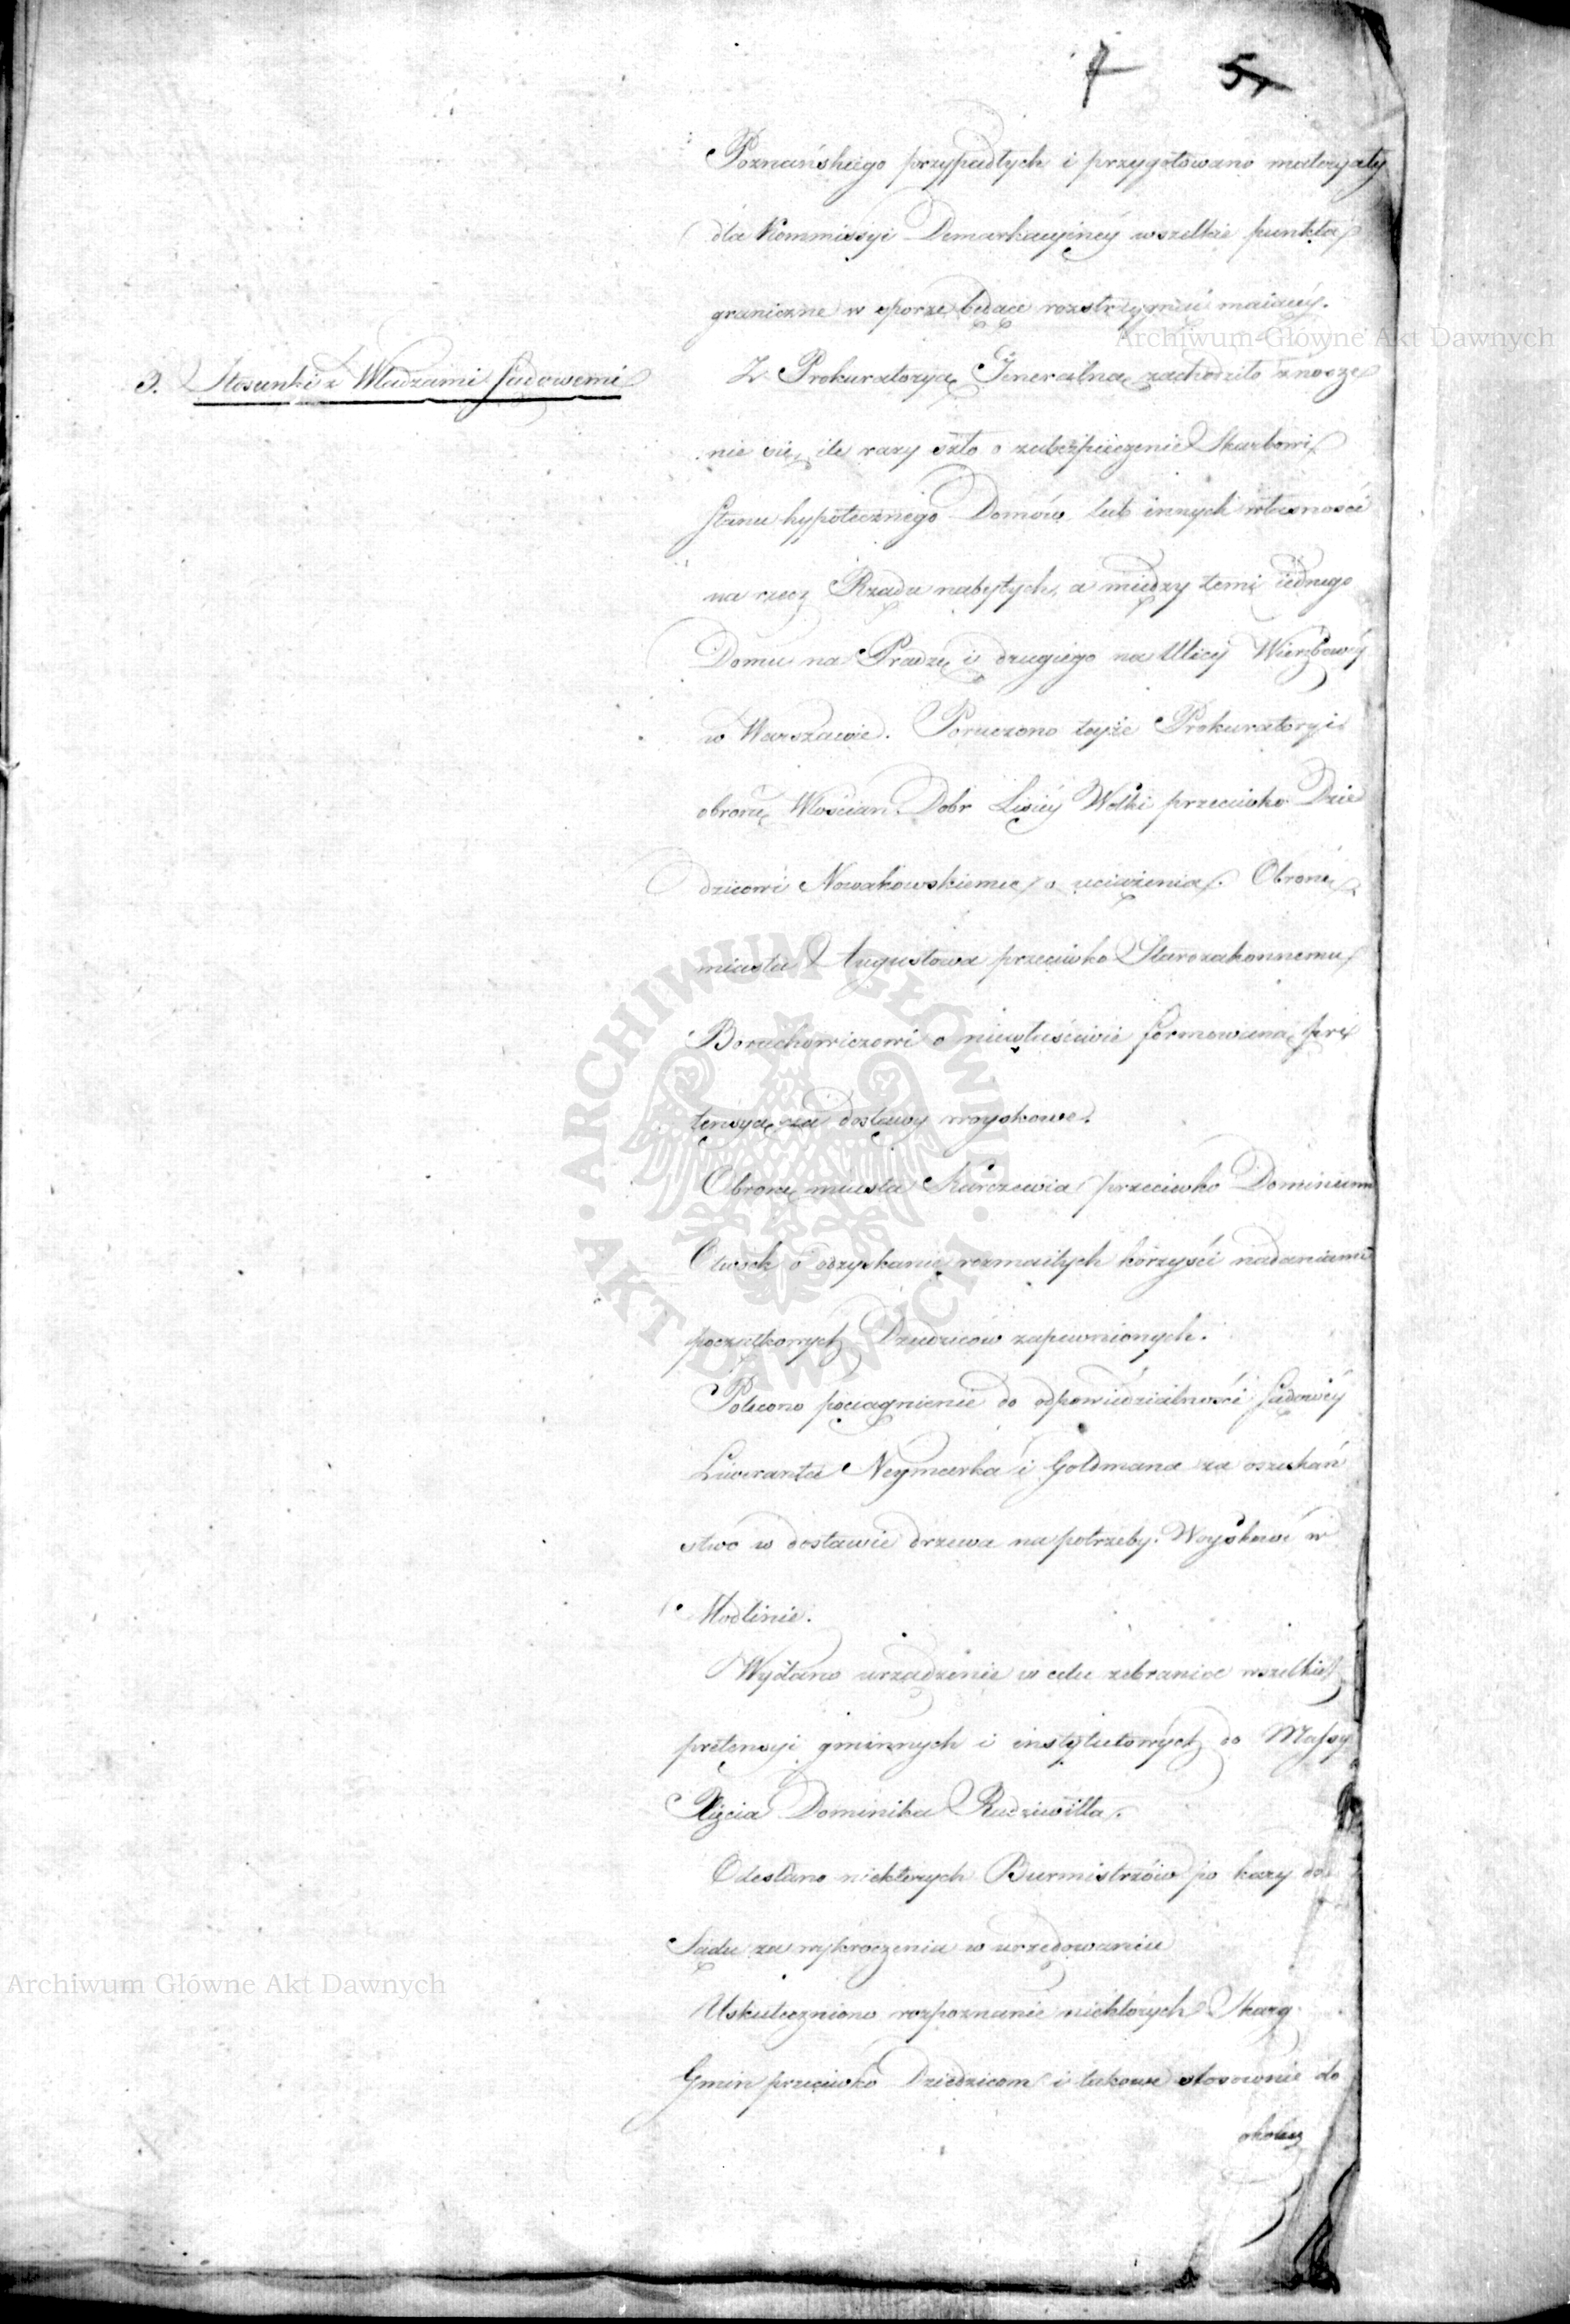 4 5
Poznańskiego przypadłych i przygotowano materyały
dla Kommissyi Demarkacyinéy wszelkie punkta
graniczne w sporze będące rozstrzygnąć maiącéy.
Archiwum Główne Akt Dawnych
3. Stosunki z Władzami Sądowemi
Z Prokuratoryą Jeneralną zachodziło znosze
nie się, ile razy szło o zabezpieczenie Skarbowi
stanu hypotecznego Domów lub innych własności
na rzecz Rządu nabytych, a między temi iednego
Domu na Pradze i drugiego na Ulicy Wierzbowéy
w Warszawie. Poruczono teyże Prokuratoryi
obronę Włościan Dobr Lisiéy Wólki przeciwko Dzie
dzicowi Nowakowskiemu o uciążenia. Obronę
miasta Augustowa przeciwko Starozakonnemu
Boruchowiczowi o niewłaściwie formowaną pre
tensyą za dostawy woyskowe.
Obronę miasta Karczewia przeciwko Dominium
Otwock o odzyskanie rozmaitych korzyści nadaniami
początkowych Dziedziców zapewnionych.
Polecono pociągnienie do odpowiedzialności sądowéy
Liweranta Neymarka i Goldmana za oszukań
stwo w dostawie drzewa na potrzeby Woyskowe w
Modlinie.
Wydano urządzenie w celu zebrania wszelkich
pretensyi gminnych i instytutowych do Massy
Xięcia Dominika Radziwiłła.
Odesłano niektórych Burmistrzów po karę do
Sądu za wykroczenia w urzędowaniu
Archiwum Główne Akt Dawnych
Uskuteczniono rozpoznanie niektórych Skarg
Gmin przeciwko Dziedzicom i takowe stosownie do
okolicz
ARCHIWUM GŁÓWNE · AKT DAWNYCH ·